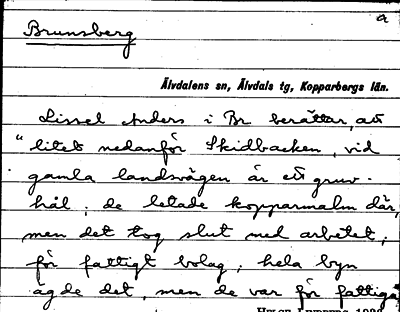 a
Brunsberg
Älvdalens sn, Älvdals tg, Kopparbergs län.
Lissel Anders i Br berättar, att
"litet nedanför Skidbacken, vid
gamla landsvägen är ett gruv-
hål; de letade kopparmalm där,
men det tog slut med arbetet;
för fattigt bolag; hela byn
ägde det, men de var för fattiga"